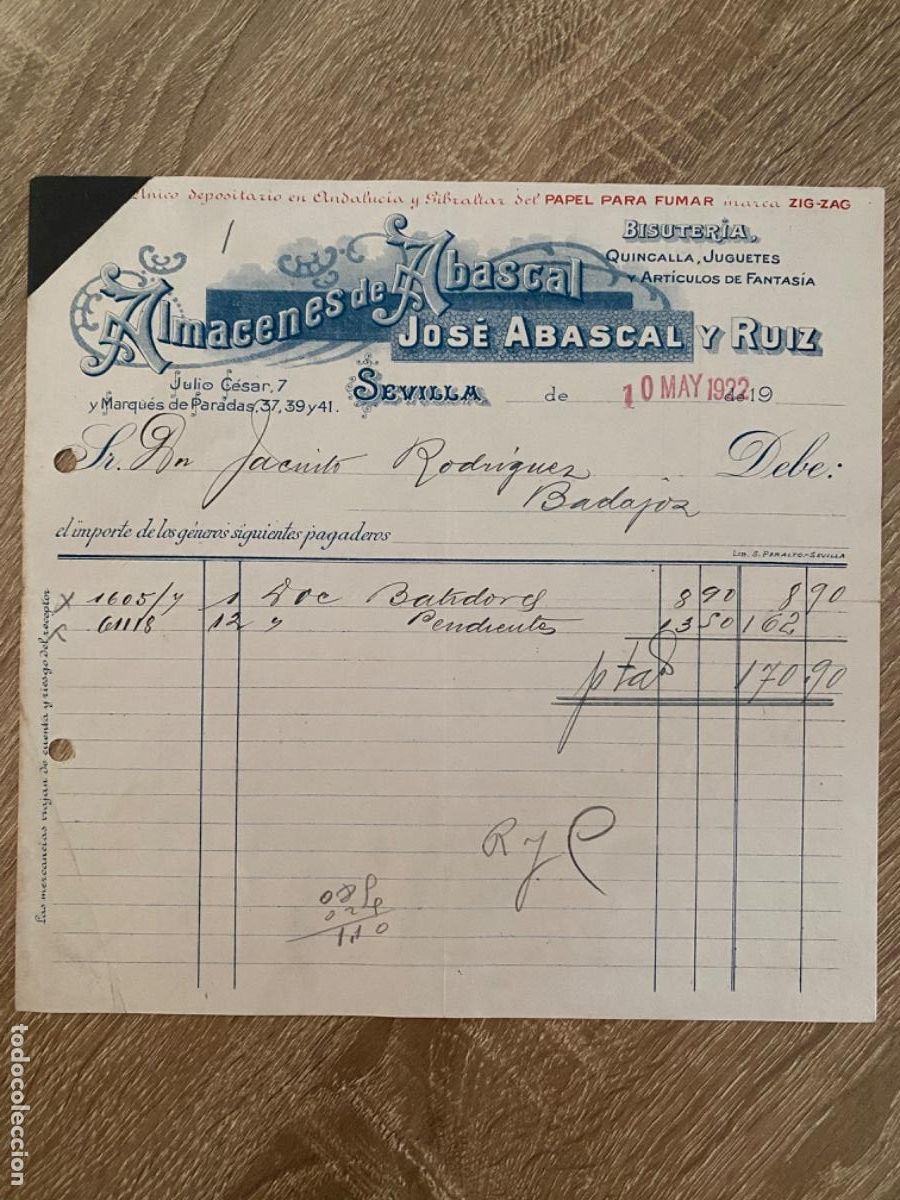 Unico depositario en Andalucía y Gibraltar del PAPEL PARA FUMAR marca ZIG-ZAG
1
BISUTERÍA,
QUINCALLA, JUGUETES
Y ARTÍCULOS DE FANTASÍA
Almacenes de Abascal
JOSÉ ABASCAL Y RUIZ
Julio César, 7
y Marqués de Paradas, 37, 39 y 41.
SEVILLA de 10 MAY 1932 de 19
Sr. Dn Jacinto Rodríguez Debe:
Badajoz
el importe de los géneros siguientes pagaderos
LIB. S. PERALTO.-SEVILLA
X 1605/7 1 Doc Batidores 8 90 8 90
X 61118 12 " Pendientes 13 50 162
ptas 170.90
R y C
Las mercancías viajan de cuenta y riesgo del receptor
todocoleccion